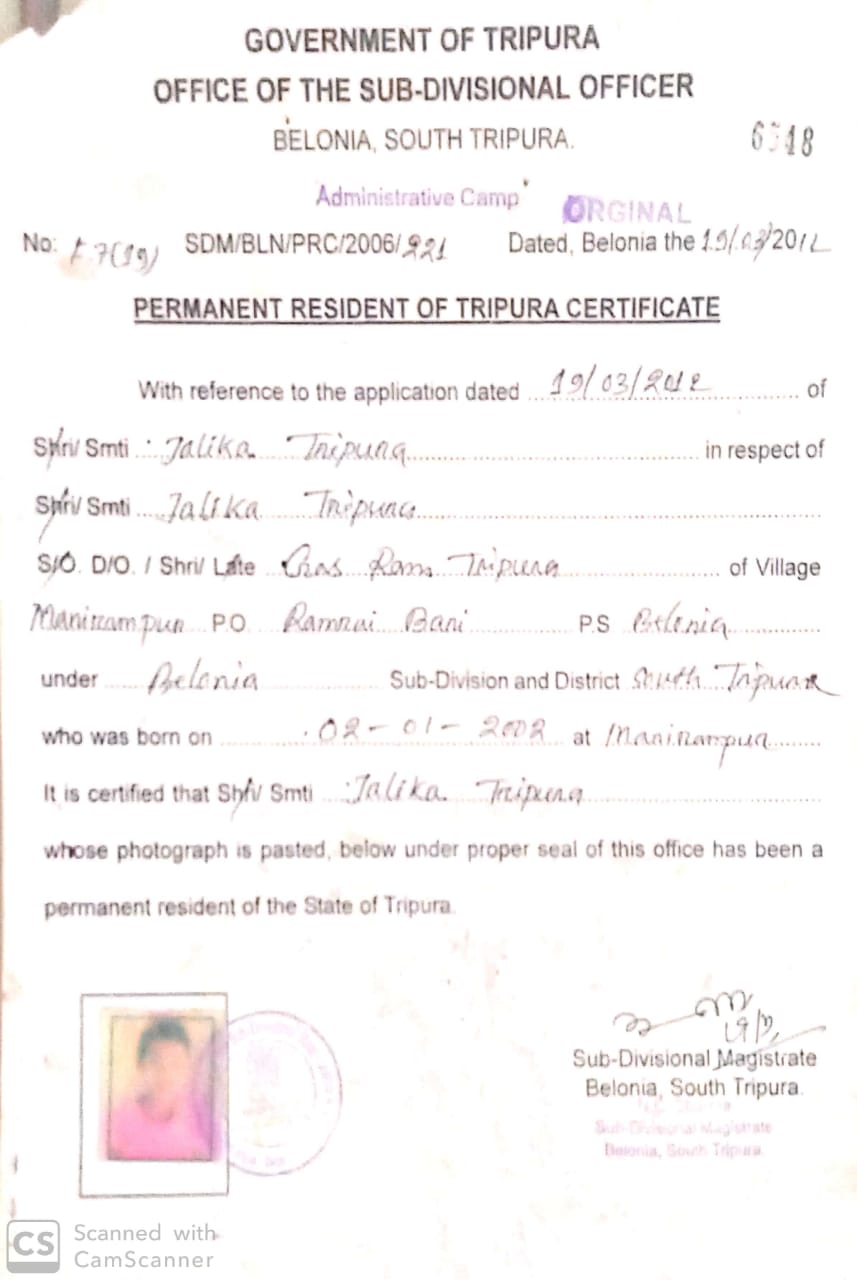 GOVERNMENT OF TRIPURA
OFFICE OF THE SUB-DIVISIONAL OFFICER
BELONIA, SOUTH TRIPURA.
Administrative Camp
ORGINAL
No: F.7(19) SDM/BLN/PRC/2006/221 Dated, Belonia the 19/03/2012
PERMANENT RESIDENT OF TRIPURA CERTIFICATE
With reference to the application dated 19/03/2012 of
Shri/ Smti Jalika Tripura in respect of
Shri/ Smti Jalika Tripura
S/O. D/O. / Shri/ Late Ram Tripura of Village
Manirampur P.O Ramrai Bari P.S Belonia
under Belonia Sub-Division and District South Tripura
who was born on 02-01-2002 at Manirampur
It is certified that Shri/ Smti Jalika Tripura
whose photograph is pasted, below under proper seal of this office has been a
permanent resident of the State of Tripura.
Sub-Divisional Magistrate
Belonia, South Tripura.
Sub-Divisional Magistrate
Belonia, South Tripura.
CS Scanned with
CamScanner